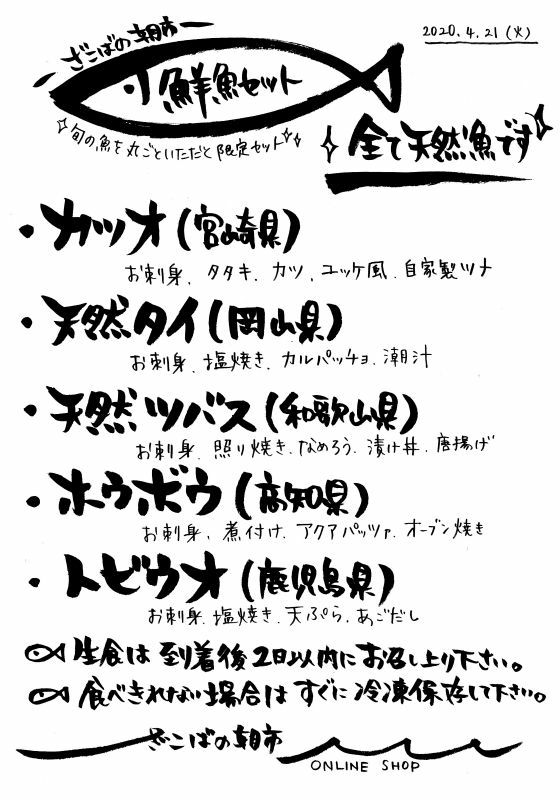 2020.4.21(火)
ざこばの朝市
鮮魚セット
旬の魚を丸ごといただく限定セット
全て天然魚です
・カツオ(宮崎県)
お刺身、タタキ、カツ、ユッケ風、自家製ツナ
・天然タイ(岡山県)
お刺身、塩焼き、カルパッチョ、潮汁
・天然ツバス(和歌山県)
お刺身、照り焼き、なめろう、漬け丼、唐揚げ
・ホウボウ(高知県)
お刺身、煮付け、アクアパッツァ、オーブン焼き
・トビウオ(鹿児島県)
お刺身、塩焼き、天ぷら、あごだし
生食は到着後2日以内にお召し上り下さい。
食べきれない場合はすぐに冷凍保存して下さい。
ざこばの朝市
ONLINE SHOP